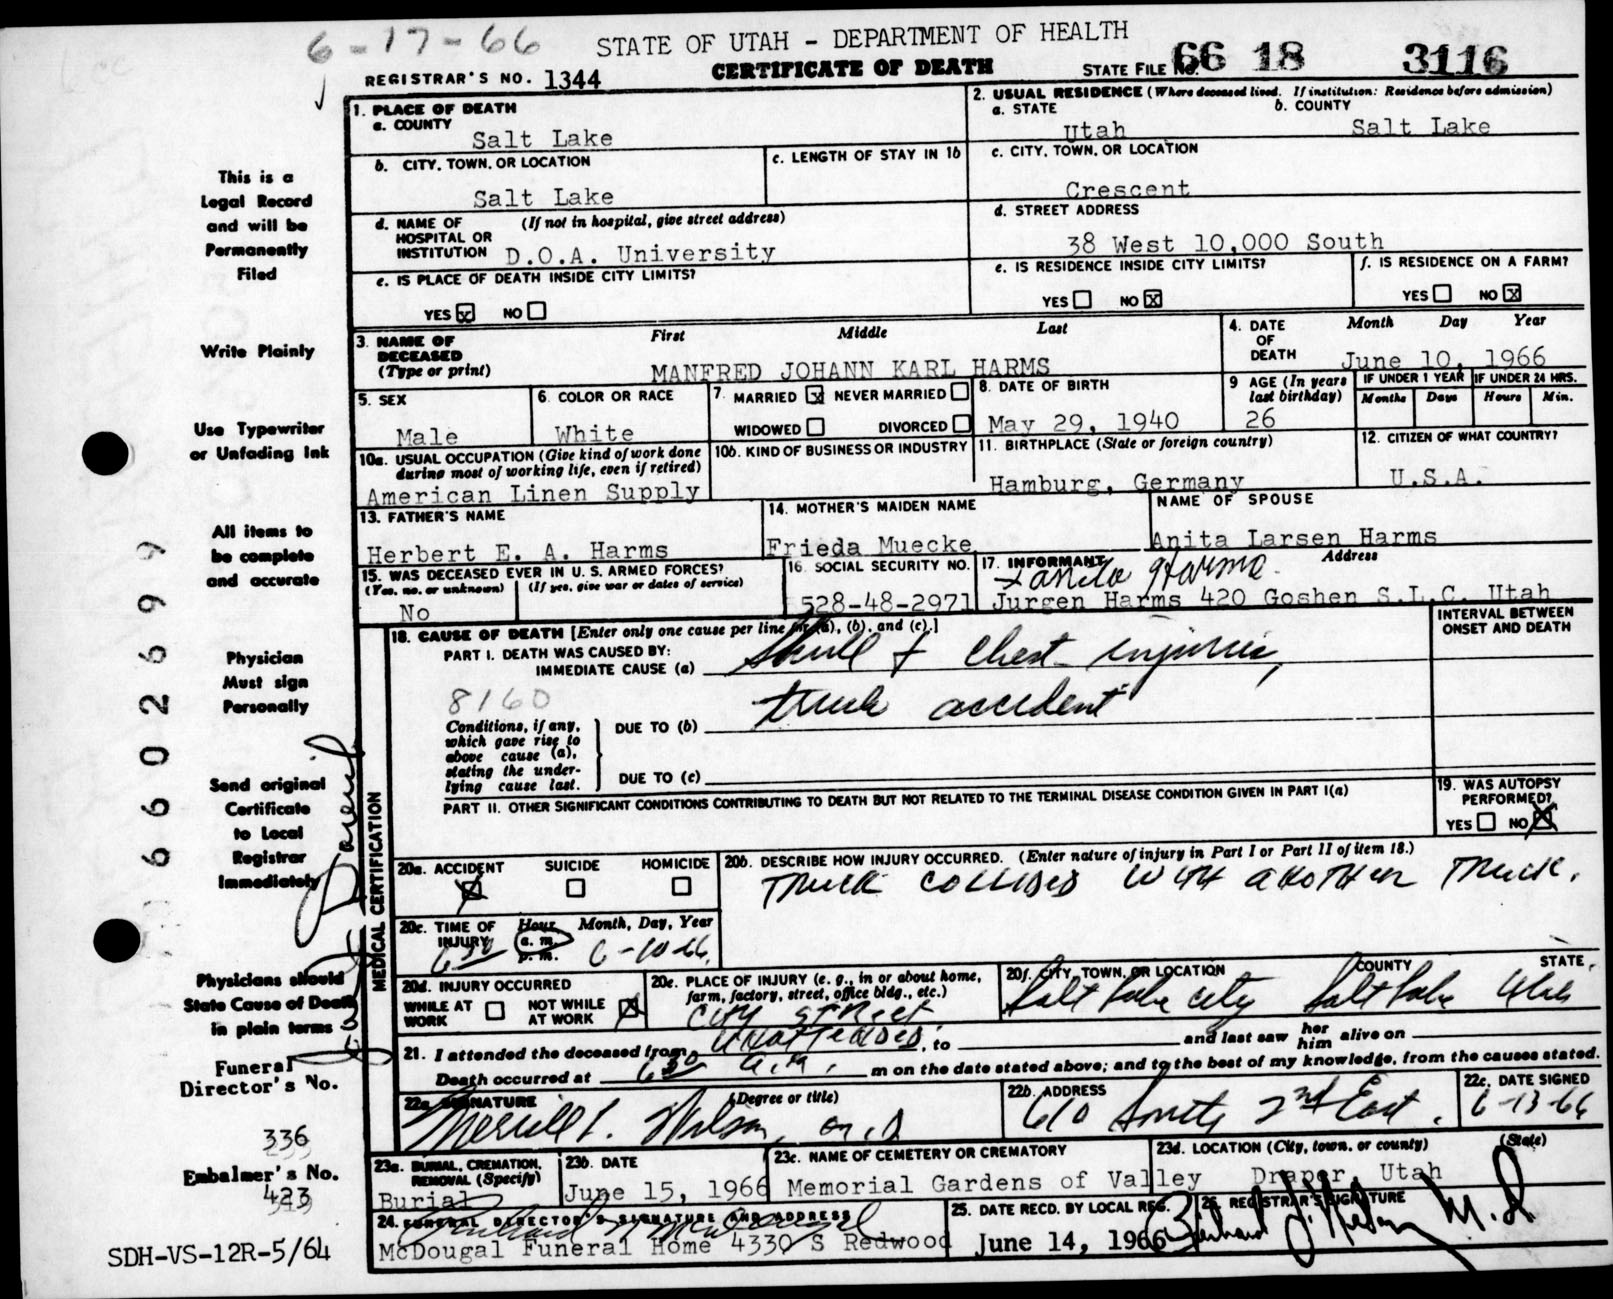 6-17-66
STATE OF UTAH - DEPARTMENT OF HEALTH
CERTIFICATE OF DEATH
REGISTRAR'S NO. 1344
STATE FILE NO. 66 18 3116
This is a
Legal Record
and will be
Permanently
Filed
Write Plainly
Use Typewriter
or Unfading Ink
All items to
be complete
and accurate
Physician
Must sign
Personally
Send original
Certificate
to Local
Registrar
Immediately
Physicians should
State Cause of Death
in plain terms
Funeral
Director's No.
336
Embalmer's No.
423
SDH-VS-12R-5/64
6602699
1. PLACE OF DEATH
a. COUNTY
Salt Lake
b. CITY, TOWN, OR LOCATION
Salt Lake
c. LENGTH OF STAY IN 1b
d. NAME OF HOSPITAL OR INSTITUTION (If not in hospital, give street address)
D.O.A. University
e. IS PLACE OF DEATH INSIDE CITY LIMITS?
YES x NO
2. USUAL RESIDENCE (Where deceased lived. If institution: Residence before admission)
a. STATE b. COUNTY
Utah Salt Lake
c. CITY, TOWN, OR LOCATION
Crescent
d. STREET ADDRESS
38 West 10,000 South
e. IS RESIDENCE INSIDE CITY LIMITS?
YES NO x
f. IS RESIDENCE ON A FARM?
YES NO x
3. NAME OF DECEASED (Type or print)
First Middle Last
MANFRED JOHANN KARL HARMS
4. DATE OF DEATH Month Day Year
June 10, 1966
5. SEX
Male
6. COLOR OR RACE
White
7. MARRIED x NEVER MARRIED
WIDOWED DIVORCED
8. DATE OF BIRTH
May 29, 1940
9 AGE (In years last birthday)
26
IF UNDER 1 YEAR IF UNDER 24 HRS.
Months Days Hours Min.
10a. USUAL OCCUPATION (Give kind of work done during most of working life, even if retired)
American Linen Supply
10b. KIND OF BUSINESS OR INDUSTRY
11. BIRTHPLACE (State or foreign country)
Hamburg, Germany
12. CITIZEN OF WHAT COUNTRY?
U.S.A.
13. FATHER'S NAME
Herbert E. A. Harms
14. MOTHER'S MAIDEN NAME
Frieda Muecke
NAME OF SPOUSE
Anita Larsen Harms
15. WAS DECEASED EVER IN U. S. ARMED FORCES?
(Yes, no, or unknown) (If yes, give war or dates of service)
No
16. SOCIAL SECURITY NO.
528-48-2971
17. INFORMANT Address
x Anita Harms
Jurgen Harms 420 Goshen S.L.C. Utah
MEDICAL CERTIFICATION
18. CAUSE OF DEATH [Enter only one cause per line for (a), (b), and (c).]
INTERVAL BETWEEN ONSET AND DEATH
PART I. DEATH WAS CAUSED BY:
IMMEDIATE CAUSE (a) Skull & chest injuries,
8160
Conditions, if any, which gave rise to above cause (a), stating the underlying cause last.
DUE TO (b) truck accident
DUE TO (c)
PART II. OTHER SIGNIFICANT CONDITIONS CONTRIBUTING TO DEATH BUT NOT RELATED TO THE TERMINAL DISEASE CONDITION GIVEN IN PART I(a)
19. WAS AUTOPSY PERFORMED?
YES NO X
20a. ACCIDENT SUICIDE HOMICIDE
X
20b. DESCRIBE HOW INJURY OCCURRED. (Enter nature of injury in Part I or Part II of item 18.)
Truck collided with another truck.
20c. TIME OF INJURY Hour a. m. p. m. Month, Day, Year
6:30 6-10-66
20d. INJURY OCCURRED
WHILE AT WORK NOT WHILE AT WORK X
20e. PLACE OF INJURY (e. g., in or about home, farm, factory, street, office bldg., etc.)
City street
20f. CITY, TOWN, OR LOCATION COUNTY STATE
Salt Lake City Salt Lake Utah
21. I attended the deceased from unattended, to and last saw her him alive on
Death occurred at 6:30 a.m. m on the date stated above; and to the best of my knowledge, from the causes stated.
22a. SIGNATURE (Degree or title)
Merrill L. Wilson, M.D.
22b. ADDRESS
610 South 2nd East.
22c. DATE SIGNED
6-13-66
23a. BURIAL, CREMATION, REMOVAL (Specify)
Burial
23b. DATE
June 15, 1966
23c. NAME OF CEMETERY OR CREMATORY
Memorial Gardens of Valley
23d. LOCATION (City, town, or county) (State)
Draper, Utah
24. FUNERAL DIRECTOR'S SIGNATURE AND ADDRESS
McDougal Funeral Home 4330 S Redwood
25. DATE RECD. BY LOCAL REG.
June 14, 1966
26. REGISTRAR'S SIGNATURE